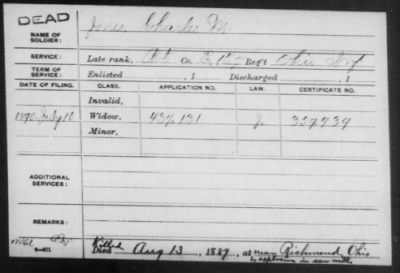 DEAD
NAME OF SOLDIER: Charles M.
SERVICE: Late rank, Co. Reg't Ohio Inf
TERM OF SERVICE: Enlisted , 1 Discharged , 1
DATE OF FILING. CLASS. APPLICATION NO. LAW. CERTIFICATE NO.
Invalid,
1890 July 10 Widow, 437,131 357739
Minor,
ADDITIONAL SERVICES:
REMARKS:
Killed
Died Aug 13, 1889, at near Richmond Ohio
by explosion in saw mill